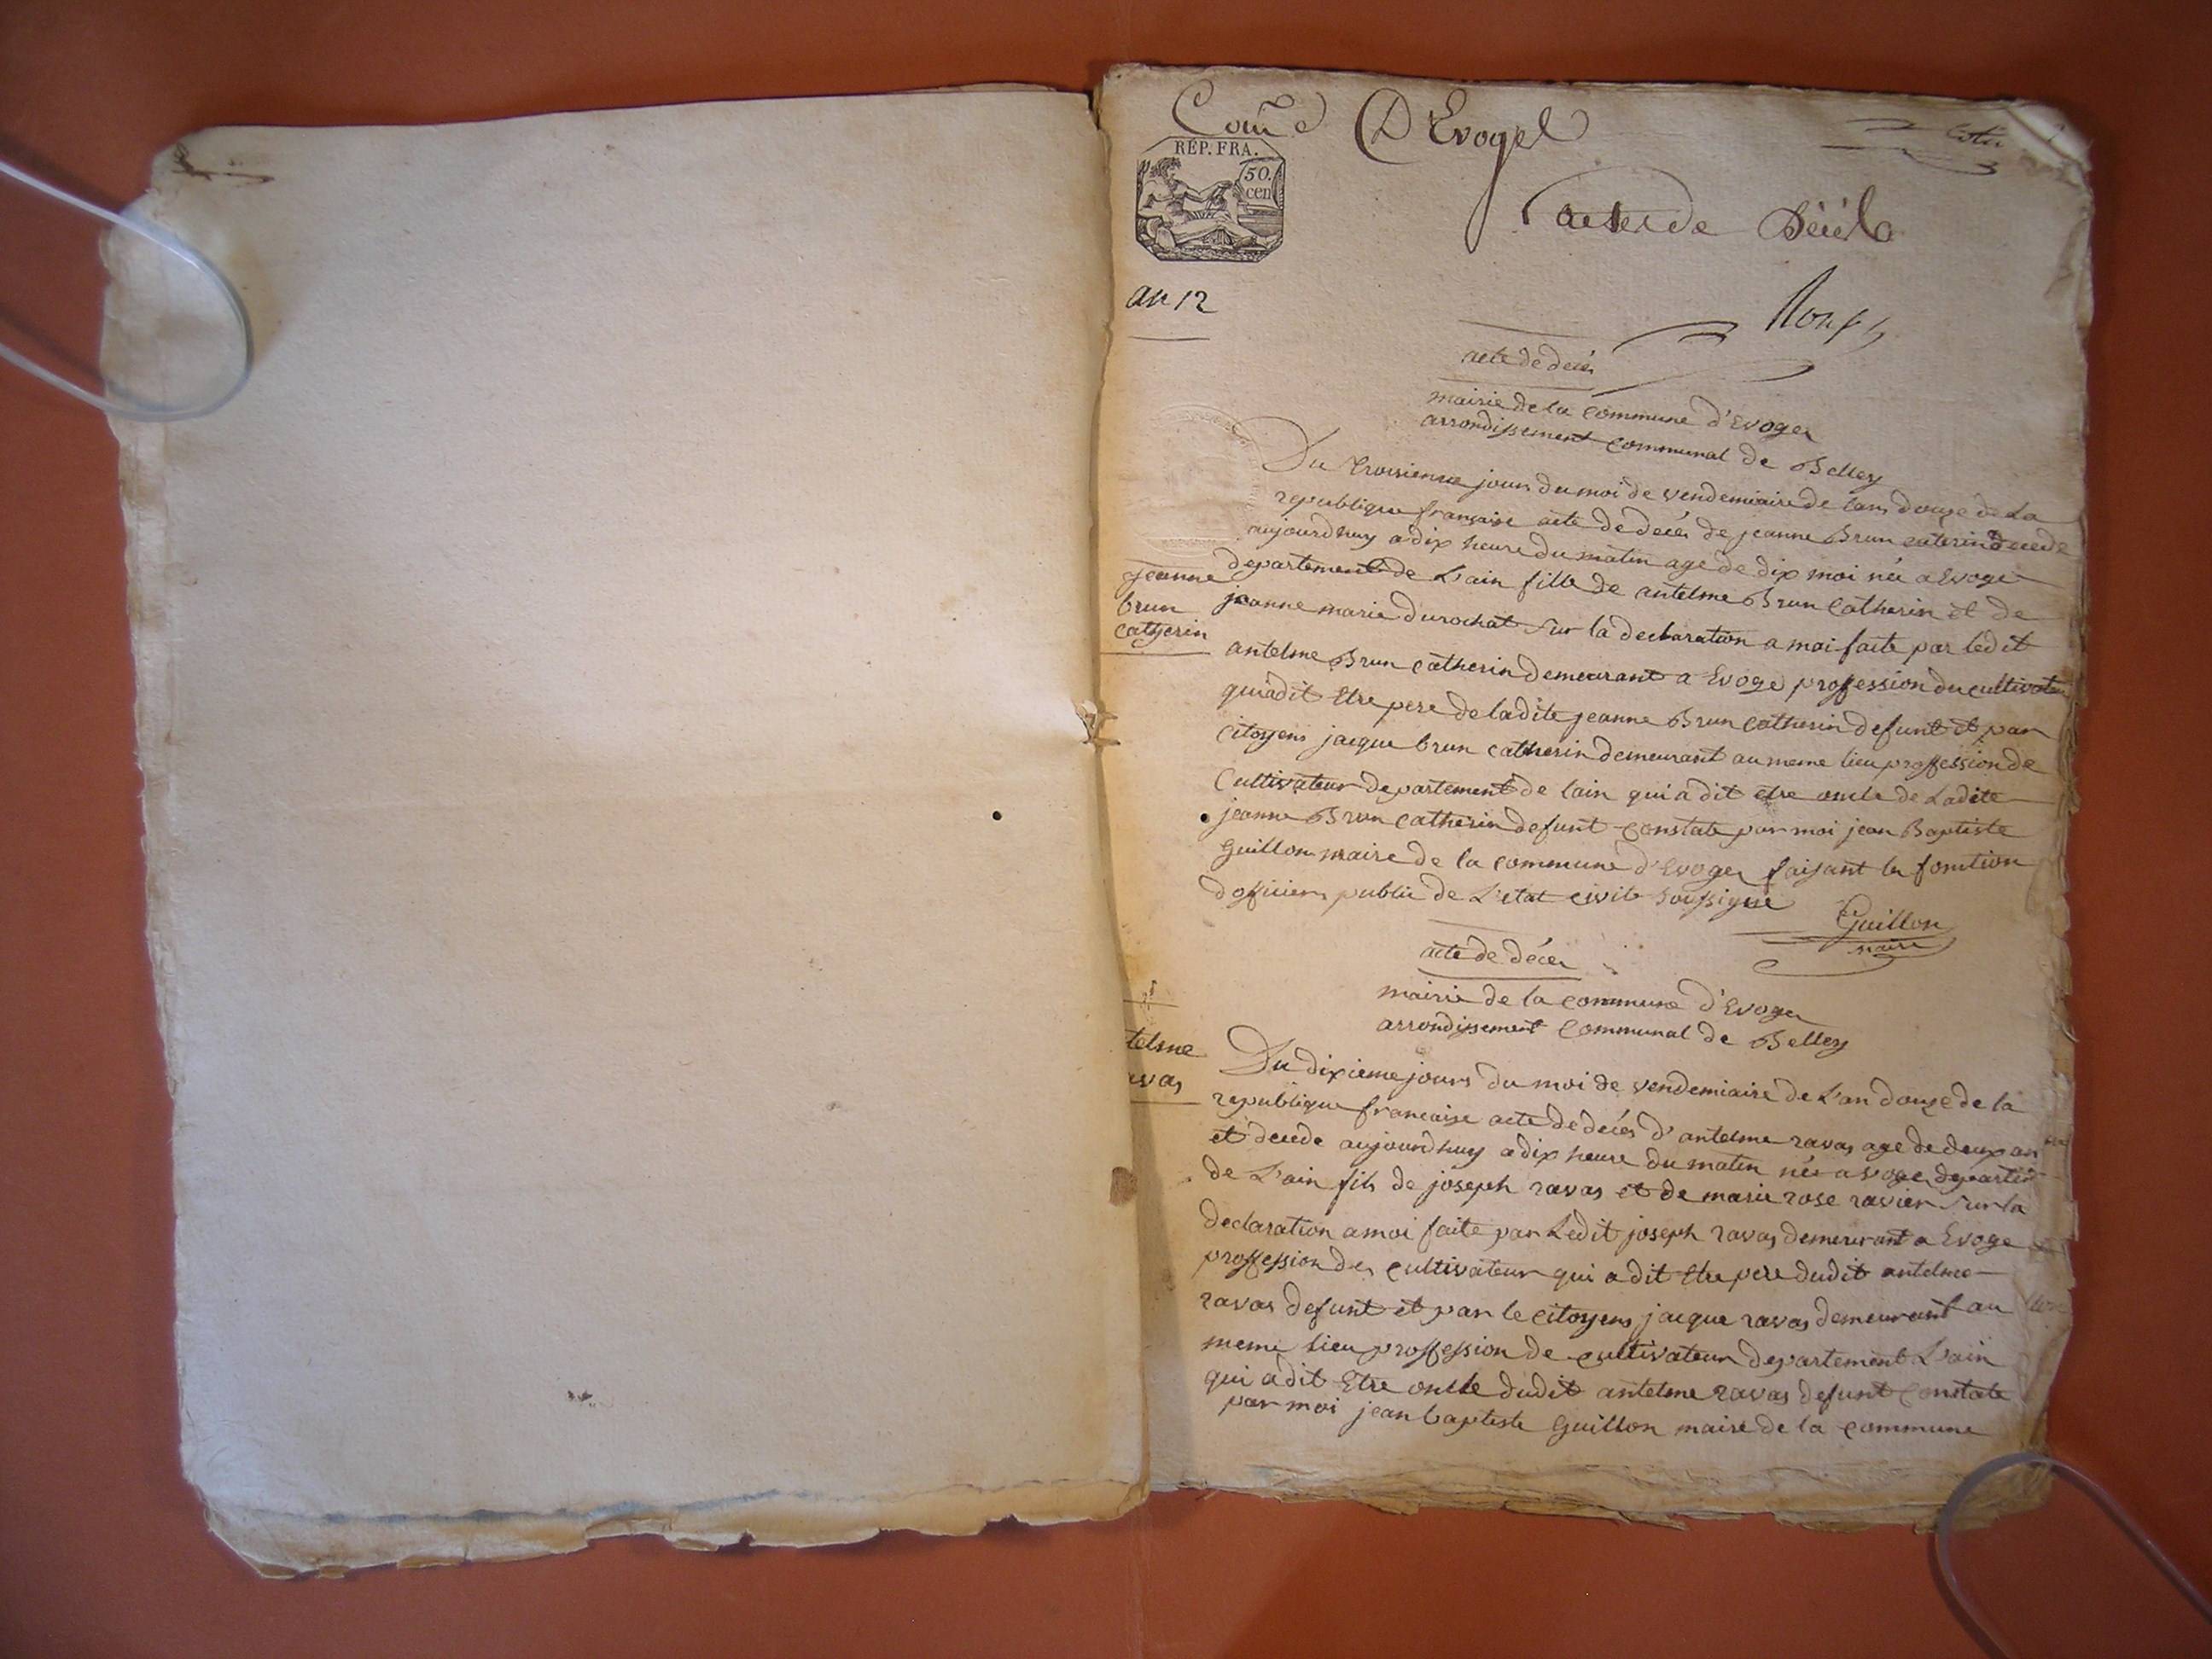 Comᵉ D'Evoges
RÉP. FRA.
50.
cen
actes de Décés
an 12
acte de decés
mairie de la commune d'Evoges
arrondissement communal de Belley
Du troisieme jours du moi de vendemiaire de lans douze de La
republique francaise acte de decés de jeanne Brun caterin decede
aujourdhuy a dix heure du matin age de dix moi née a Evoge
departement de L'ain fille de antelme Brun Catherin et de
jeanne marie durochat sur la declaration a moi faite par ledit
antelme Brun Catherin demeurant a Evoge proffession du cultivateur
qui a dit Etre pere de ladite jeanne Brun Catherin defunt et par
Citoyens jacque brun Catherin demeurant au meme lieu proffession de
Cultivateur departement de lain qui a dit etre oncle de Ladite
jeanne Brun Catherin defunt constate par moi jean Baptiste
Guillon maire de la commune d'Evoges faisant la fonction
d'officiers public de L'etat civile soussigné
jeanne
brun
catherin
Guillon
maire
acte de décés
mairie de la commune d'Evoges
arrondissement Communal de Belley
Du dixieme jours du moi de vendemiaire de L'an douze de la
republique francaise acte de decés d'antelme ravas age de deux an
et decede aujourdhuy a dix heure du matin née a voges departemt
de L'ain fils de joseph ravas et de marie rose ravier sur la
declaration a moi faite par Ledit joseph ravas demeurant a Evoge
proffession des cultivateur qui a dit Etre pere dudit antelme
ravas defunt et par le citoyens jacque ravas demeurant au
meme lieu proffession de cultivateur departement L'ain
qui a dit Etre oncle dudit antelme ravas defunt Constate
par moi jean baptiste Guillon maire de la commune
telme
avas